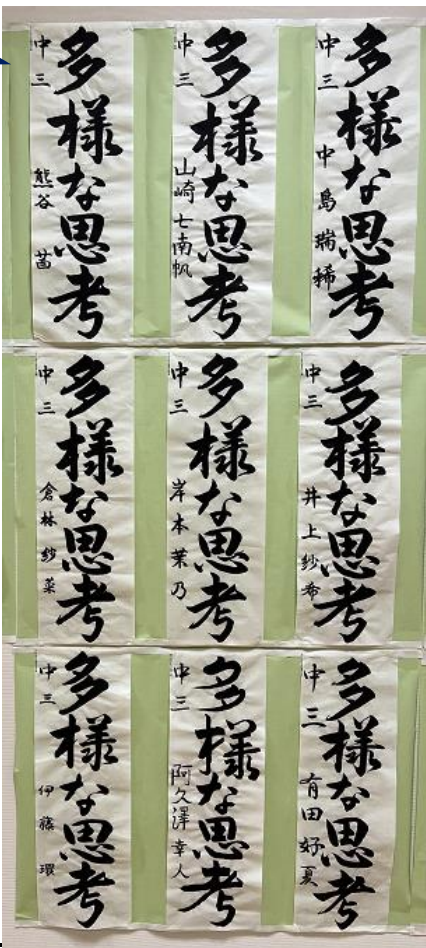 多様な思考
中三 中島瑞稀
多様な思考
中三 山崎七南帆
多様な思考
中三 熊谷茜
多様な思考
中三 井上紗希
多様な思考
中三 岸本葉乃
多様な思考
中三 倉林紗菜
多様な思考
中三 有田好夏
多様な思考
中三 阿久澤幸人
多様な思考
中三 伊藤